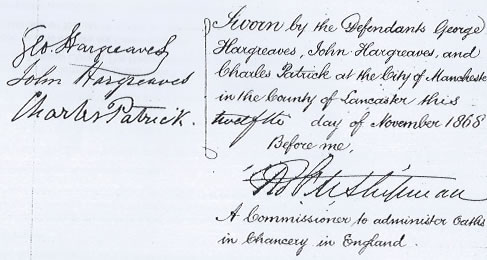 Geo Hargreaves
John Hargreaves
Charles Patrick.
Sworn by the Defendants George
Hargreaves, John Hargreaves, and
Charles Patrick at the City of Mancheste
in the County of Lancaster this
twelfth day of November 1868
Before me,
A Commissioner to administer Oaths
in Chancery in England.